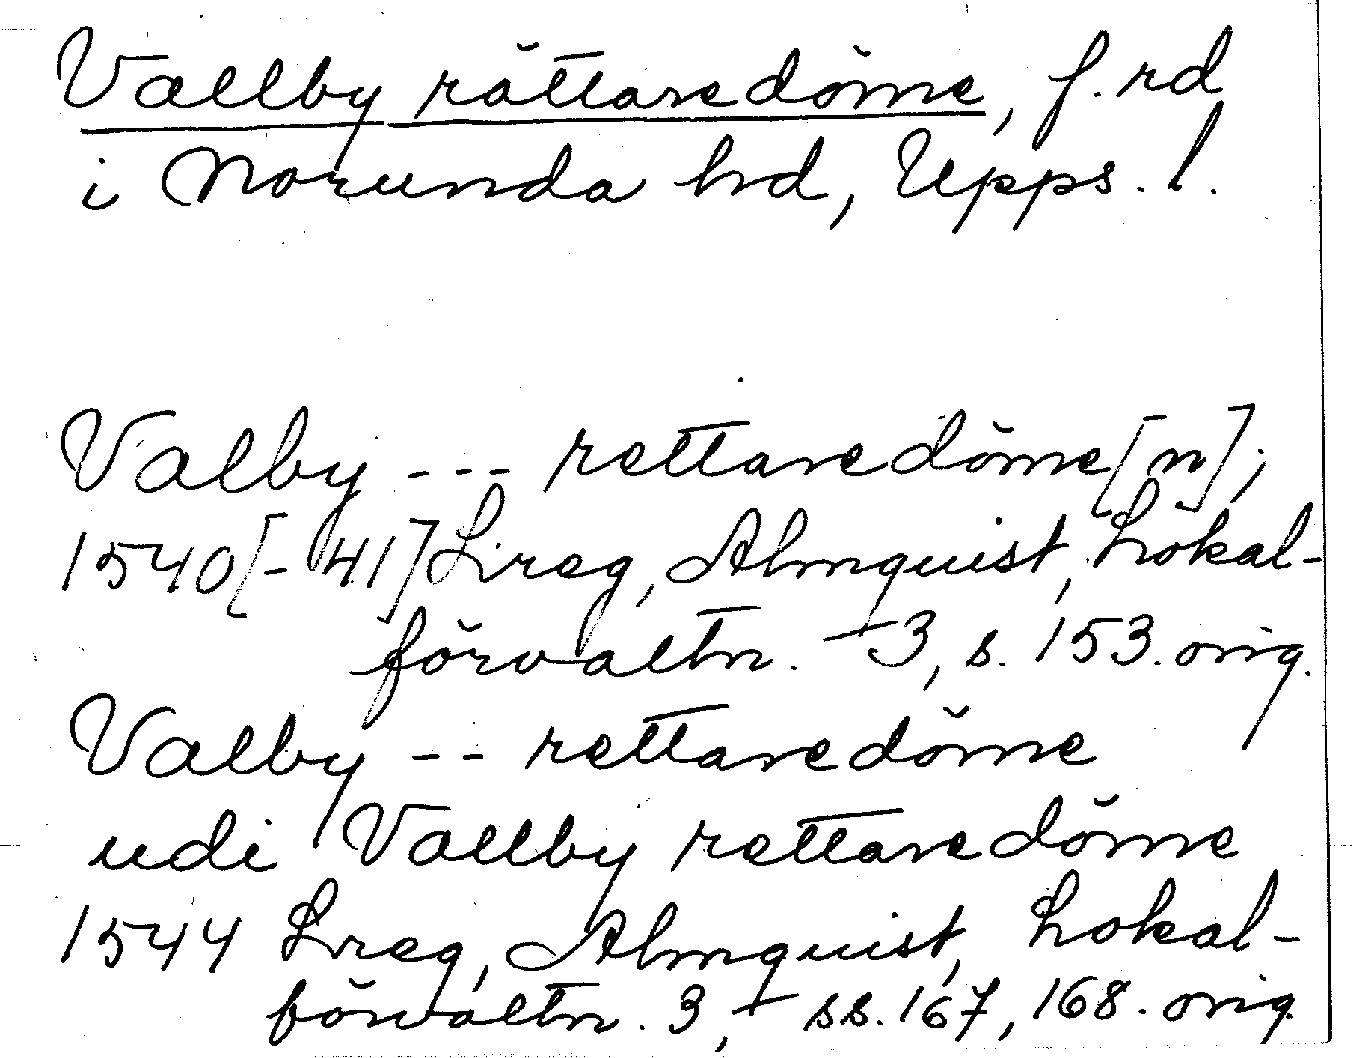 Vallby rättaredöme, f. rd
i Norunda hd, Upps. l.
Valby --- rettaredöme[n];
1540[-41] Lreg, Almquist, Lokal-
förvaltn. 3, s. 153. orig.
Valby -- rettaredöme
udi Vallby rettaredöme
1544 Lreg, Almquist, Lokal-
förvaltn. 3, ss. 167, 168. orig.